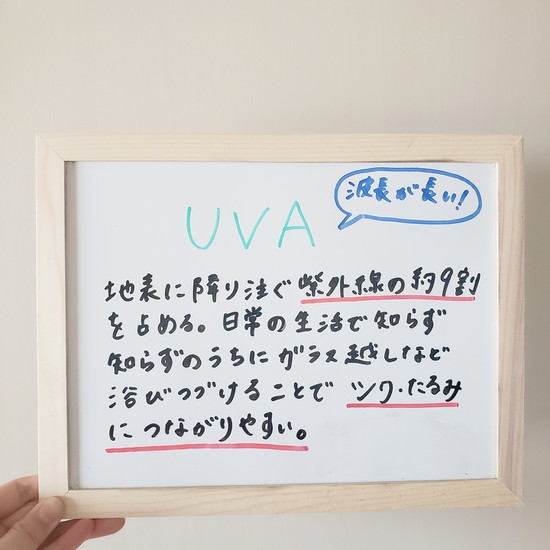 UVA
波長が長い!
地表に降り注ぐ紫外線の約9割
を占める。日常の生活で知らず
知らずのうちにガラス越しなど
浴びつづけることでシワ・たるみ
につながりやすい。